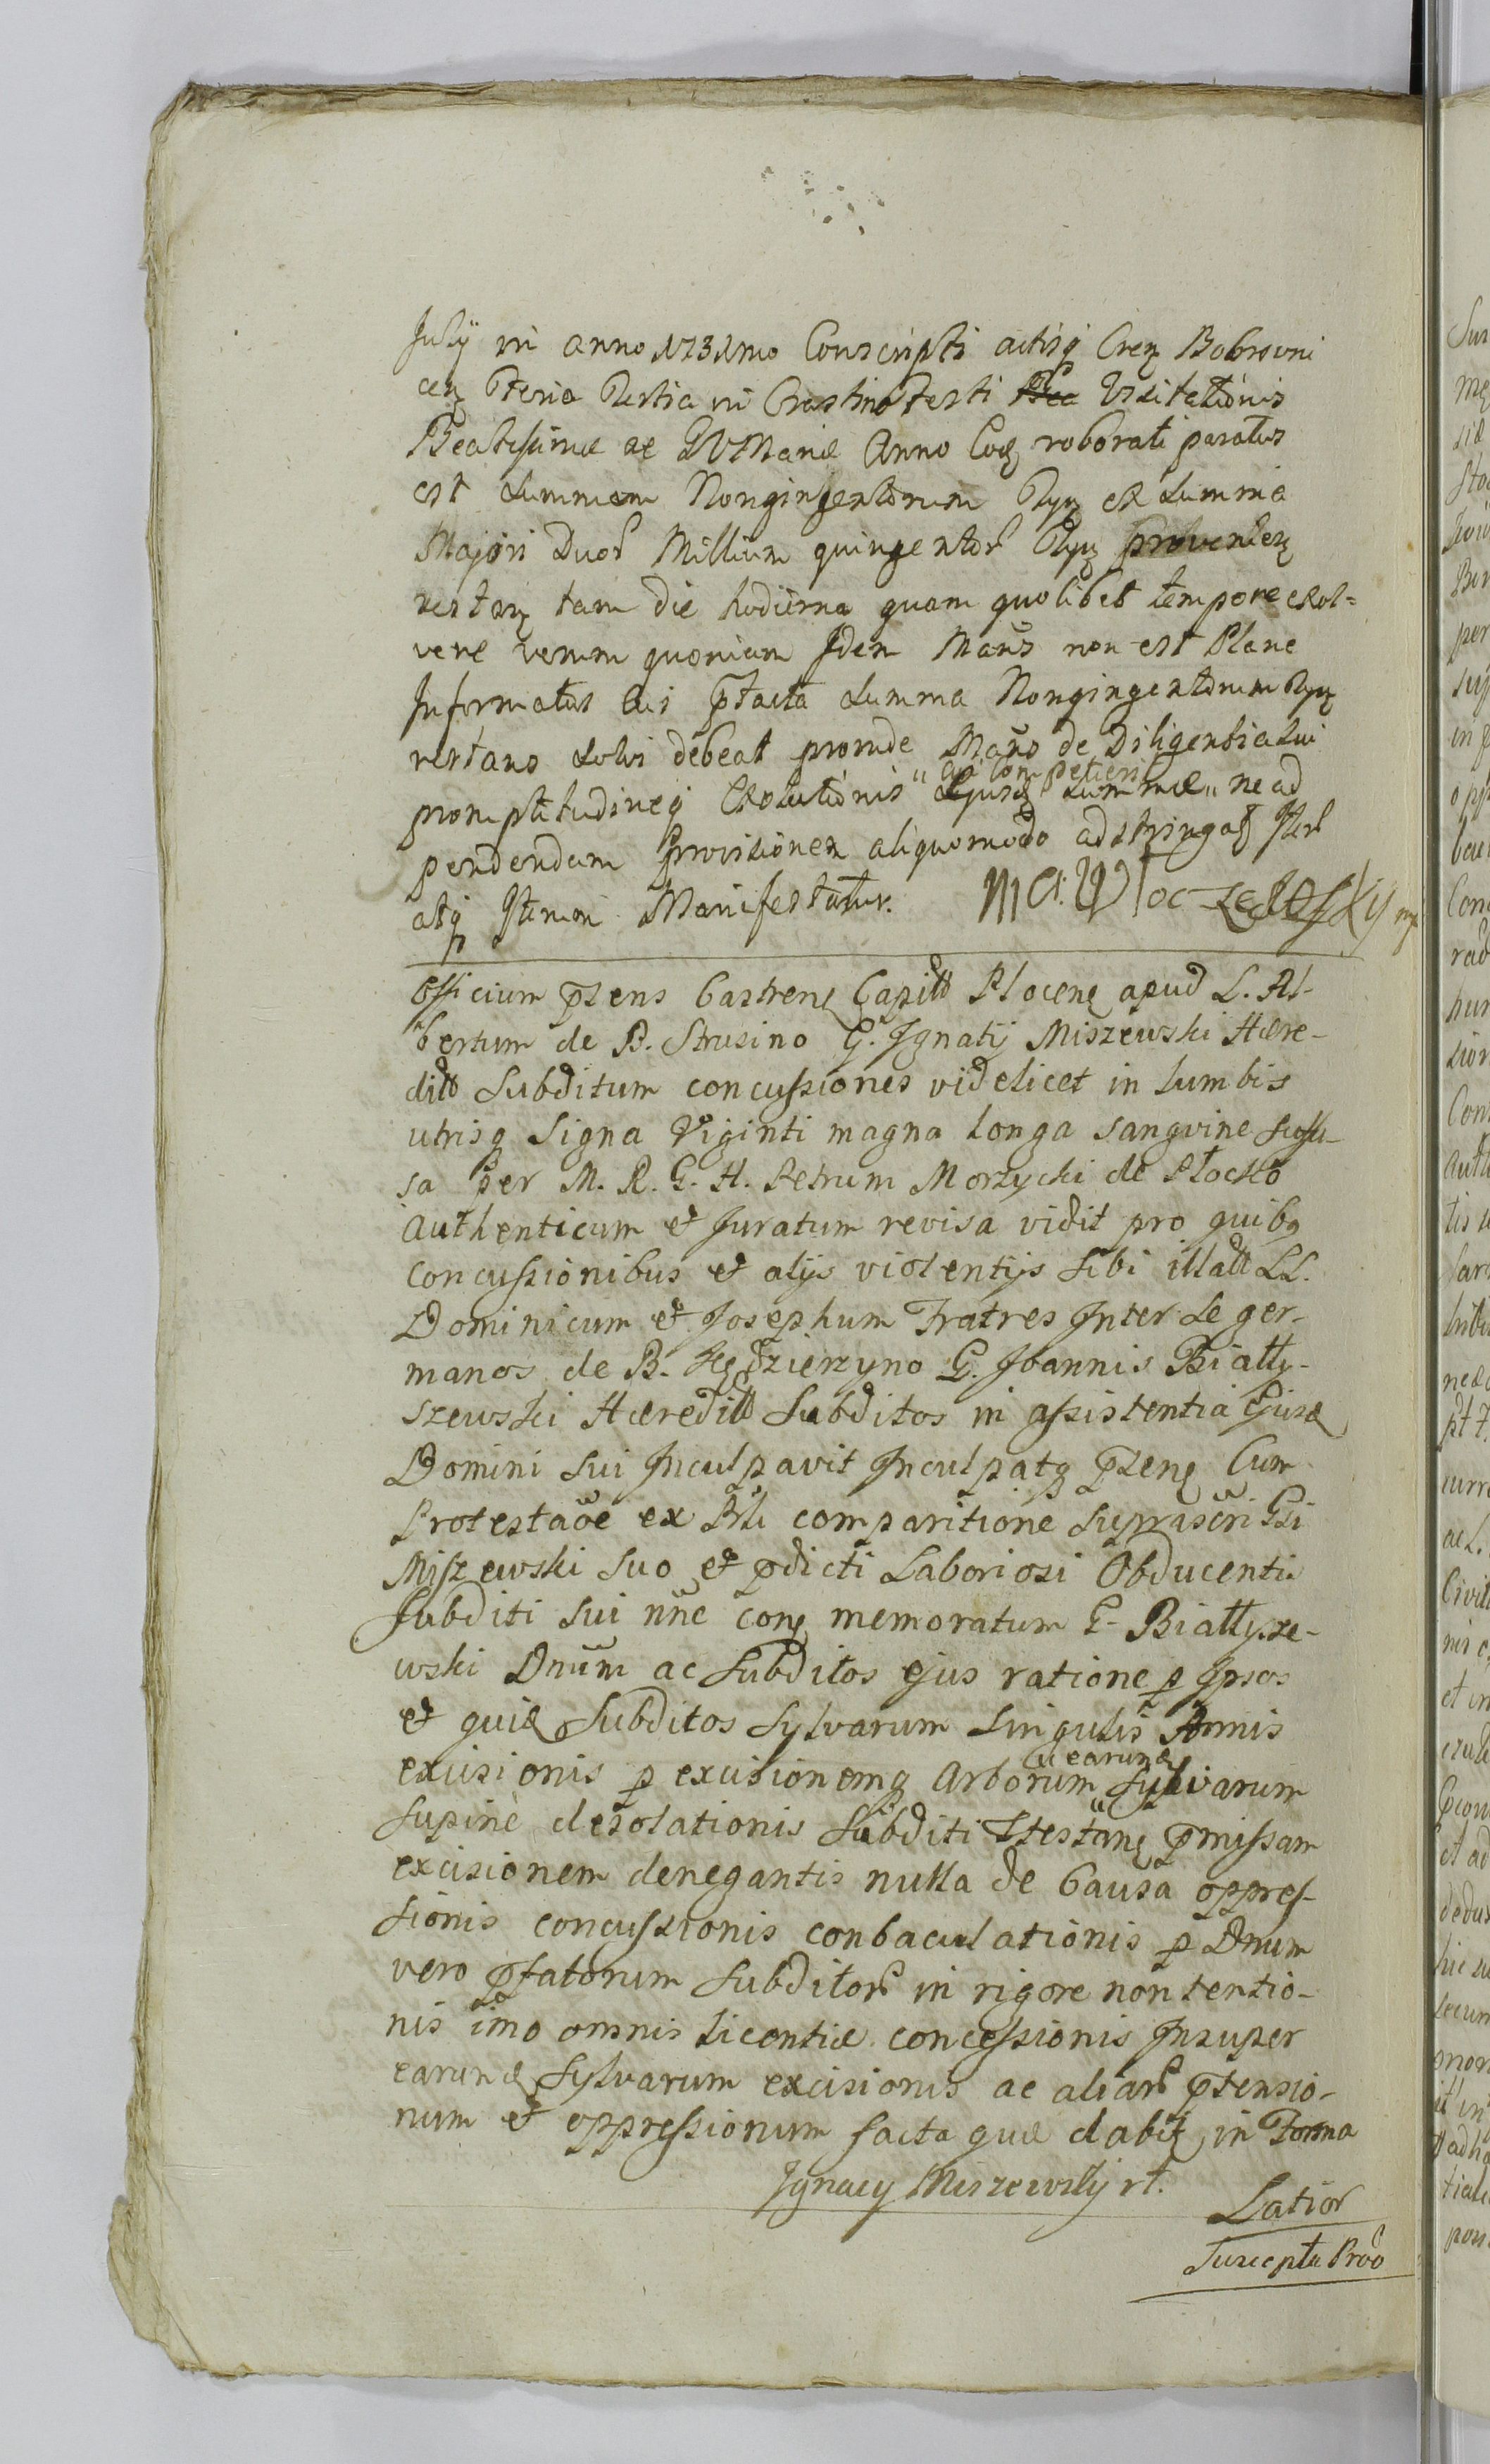 July in anno 1731mo Conscripti actisq Cren Bobrowni
cen Feria Tertia in Crastino Festi Visitationis
Beatissimæ ae GVMariæ Anno Eod roborati paratus
est summam Nongingentorum ex summa
Majori Duor Millium quingentor
restan tam die hodierna quam quolibet tempore exol=
vere verum quoniam Idem Mans non est Plane
Informatus cui ptacta summa Nongingentorum
restans solvi debeat proinde Mans de Diligentia sui
promptitudineq Exolutionis ejusd summæ ne ad
cui competieri
pendendam Provisionem aliquomodo adstringat Iter
atq Iterum Manifestatur.
Officium ptens Castren Capitt Plocen apud L. Al-
bertum de B. Strusino G. Ignatij Miszewski Hære-
ditt Subditum concussiones videlicet in lumbis
utrisq Signa Viginti magna longa sangvine suffu-
sa per M. R. G. H. Petrum Morzycki de Płocko
Authenticum et Juratum revisa vidit pro quibq
concussionibus et alijs violentijs sibi illatt LL.
Dominicum et Josephum Fratres Inter se ger-
manos de B. Kędzierzyno G. Joannis Białły-
szewski Hæreditt Subditos in assistentia Ejusd
Domini sui Inculpavit Inculpatq ptens Cum
Protestaoe ex Psli comparitione suprascri Gsi
Miszewski suo et pdicti Laboriosi Obducentis
Subditi sui nnc con memoratum G. Białłysze-
wski Dnum ac Subditos ejus ratione p Ipsos
et quid Subditos Sylvarum singulis Annis
excisionis p excisionemq Arborum Sylvarum
earund
supinè desolationis Subditi ptestan pmissam
excisionem denegantis nulla de Causa oppres-
sionis concussionis conbaculationis p Dnum
vero pfatorum Subditor in rigore non tentio-
nis imo omnis licentiæ concessionis Insuper
earund Sylvarum excisionis ac aliar ptensio-
num et oppressionum facta quæ dabit in Forma
Ignacy Miszewsky
Latior
Suscepta Prõo